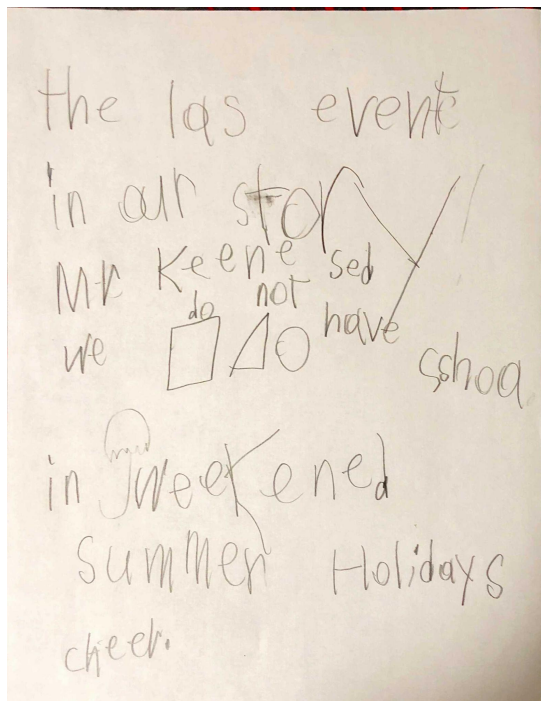 the las event
in our story
Mr Keene sed
we do not have sshoa
in weekened
summer Holidays
cheer.